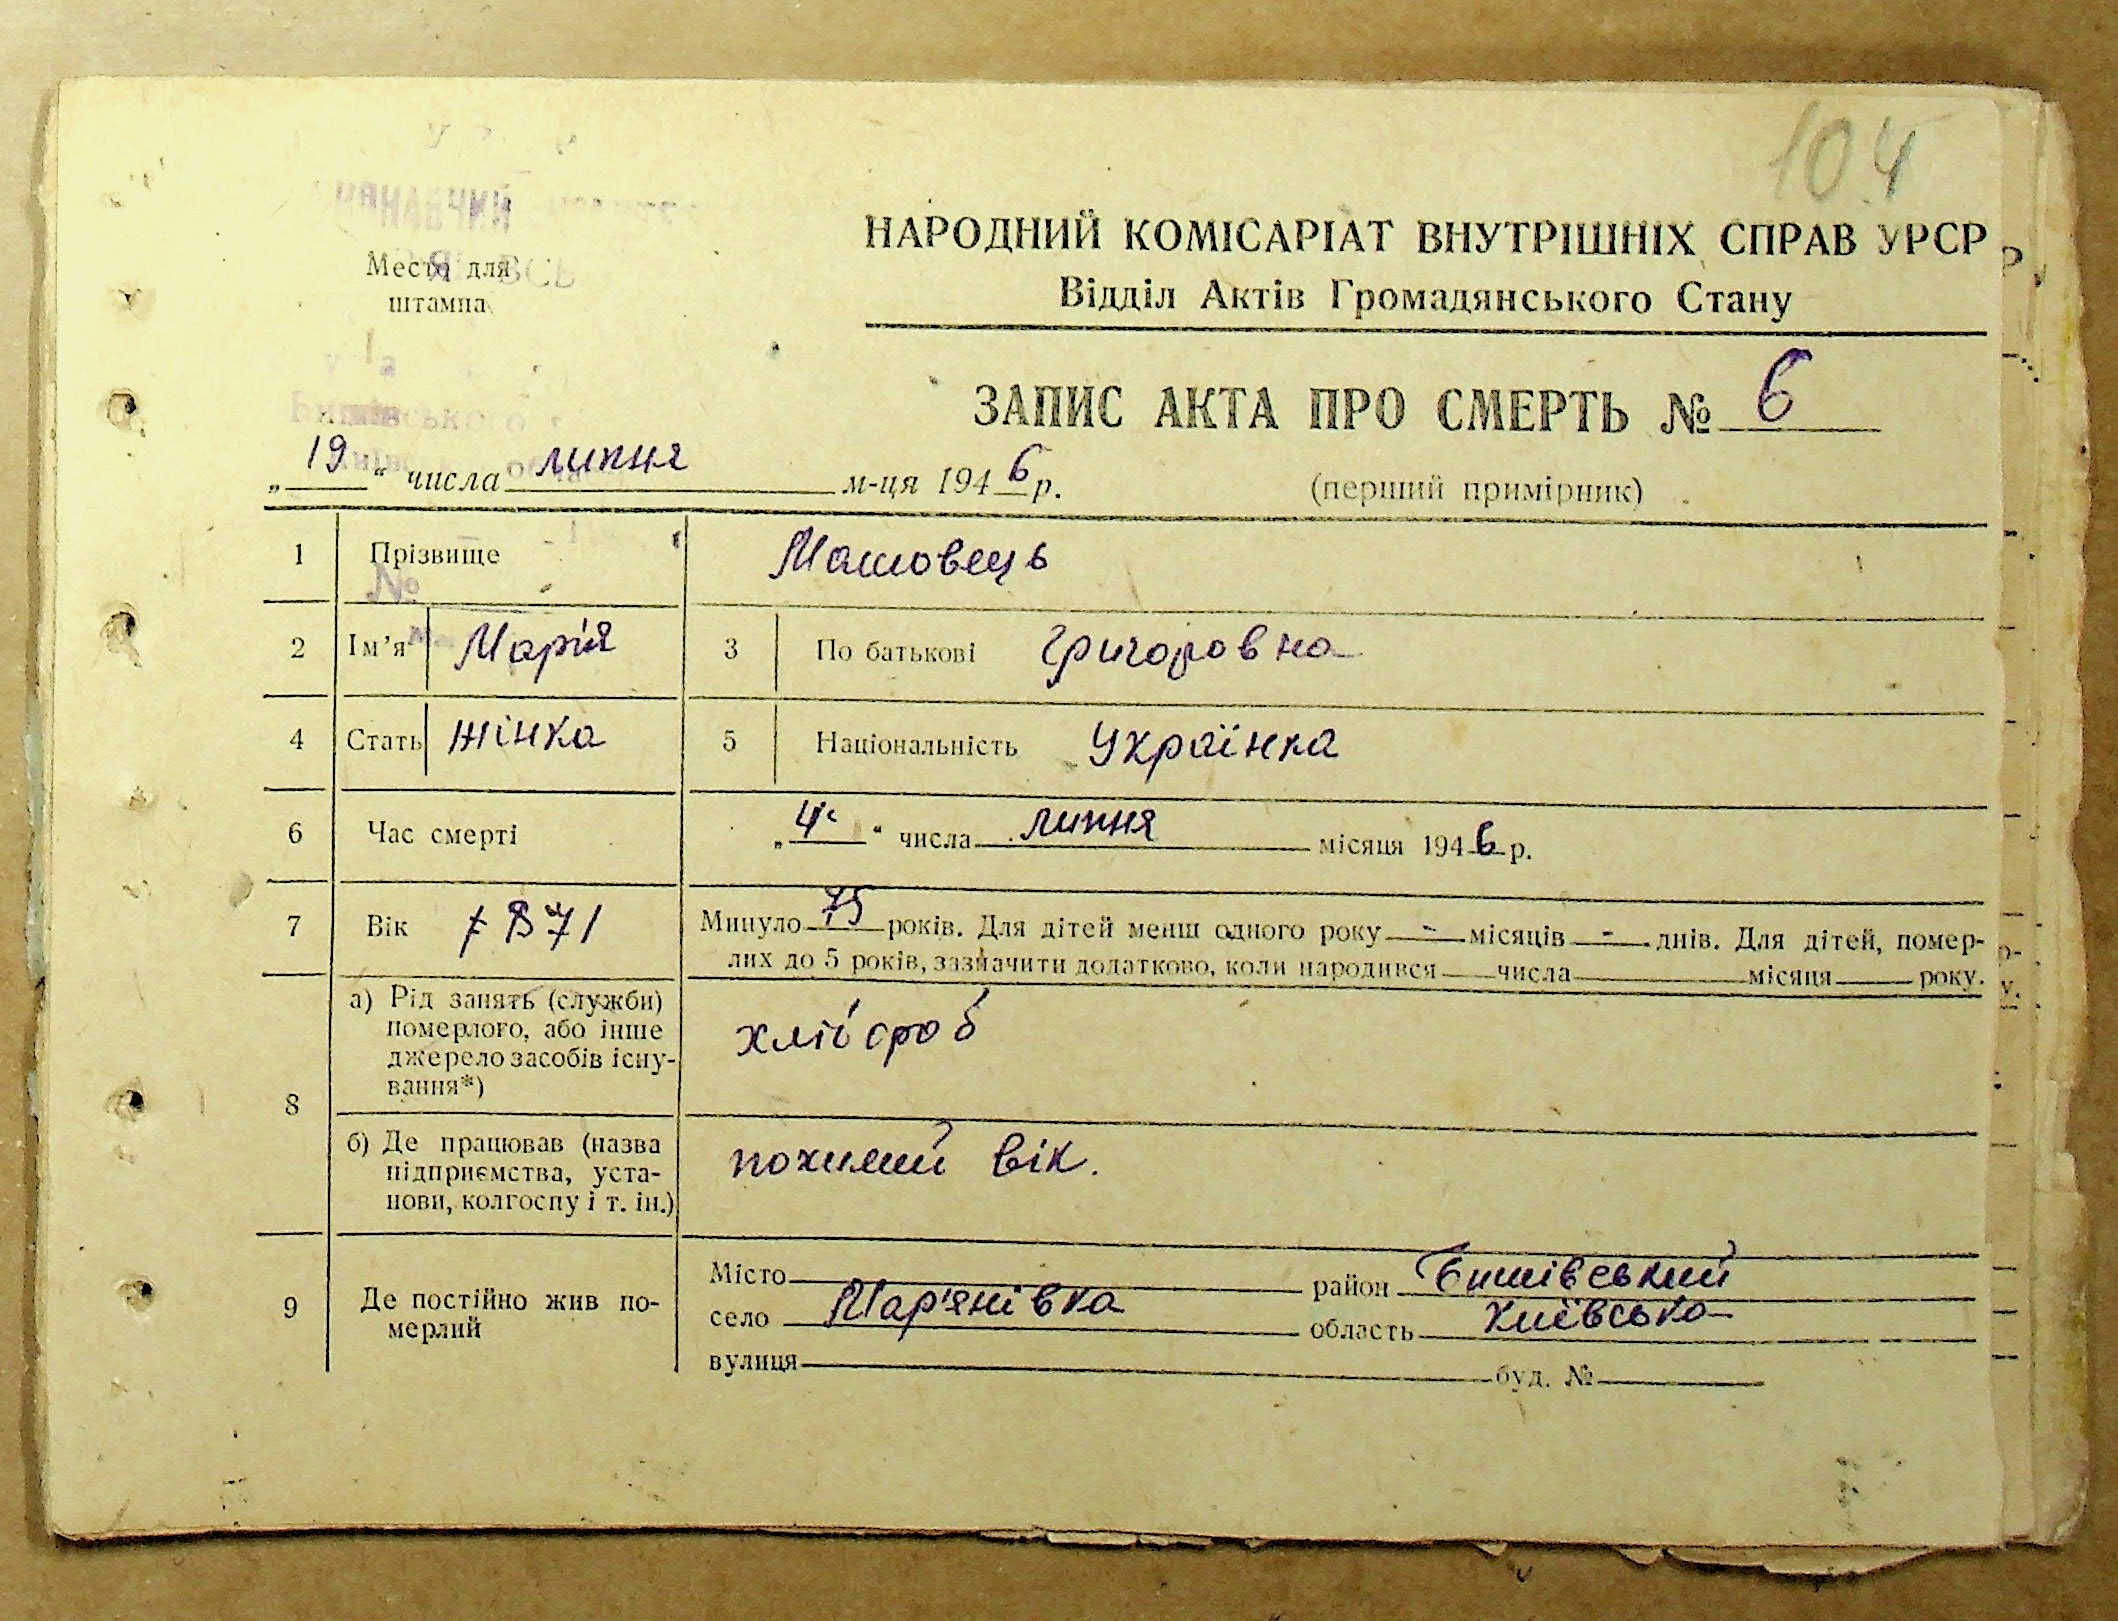 104
Место для
штампа
НАРОДНИЙ КОМІСАРІАТ ВНУТРІШНІХ СПРАВ УРСР
Відділ Актів Громадянського Стану
ЗАПИС АКТА ПРО СМЕРТЬ № 6
„19“ числа липня м-ця 1946 р.
(перший примірник)
1 Прізвище Машовець
№
2 Ім'я Марія 3 По батькові Григоровна
4 Стать жінка 5 Національність Українка
6 Час смерті „4“ числа липня місяця 1946 р.
7 Вік 1871 Минуло 75 років. Для дітей менш одного року - місяців - днів. Для дітей, помер-
лих до 5 років, зазначити додатково, коли народився числа місяця року.
8 а) Рід занять (служби)
померлого, або інше
джерело засобів існу-
вання*)
хлібороб
б) Де працював (назва
підприємства, уста-
нови, колгоспу і т. ін.)
похилий вік.
9 Де постійно жив по-
мерлий
Місто район Бишівський
село Мар'янівка область Київська
вулиця буд. №